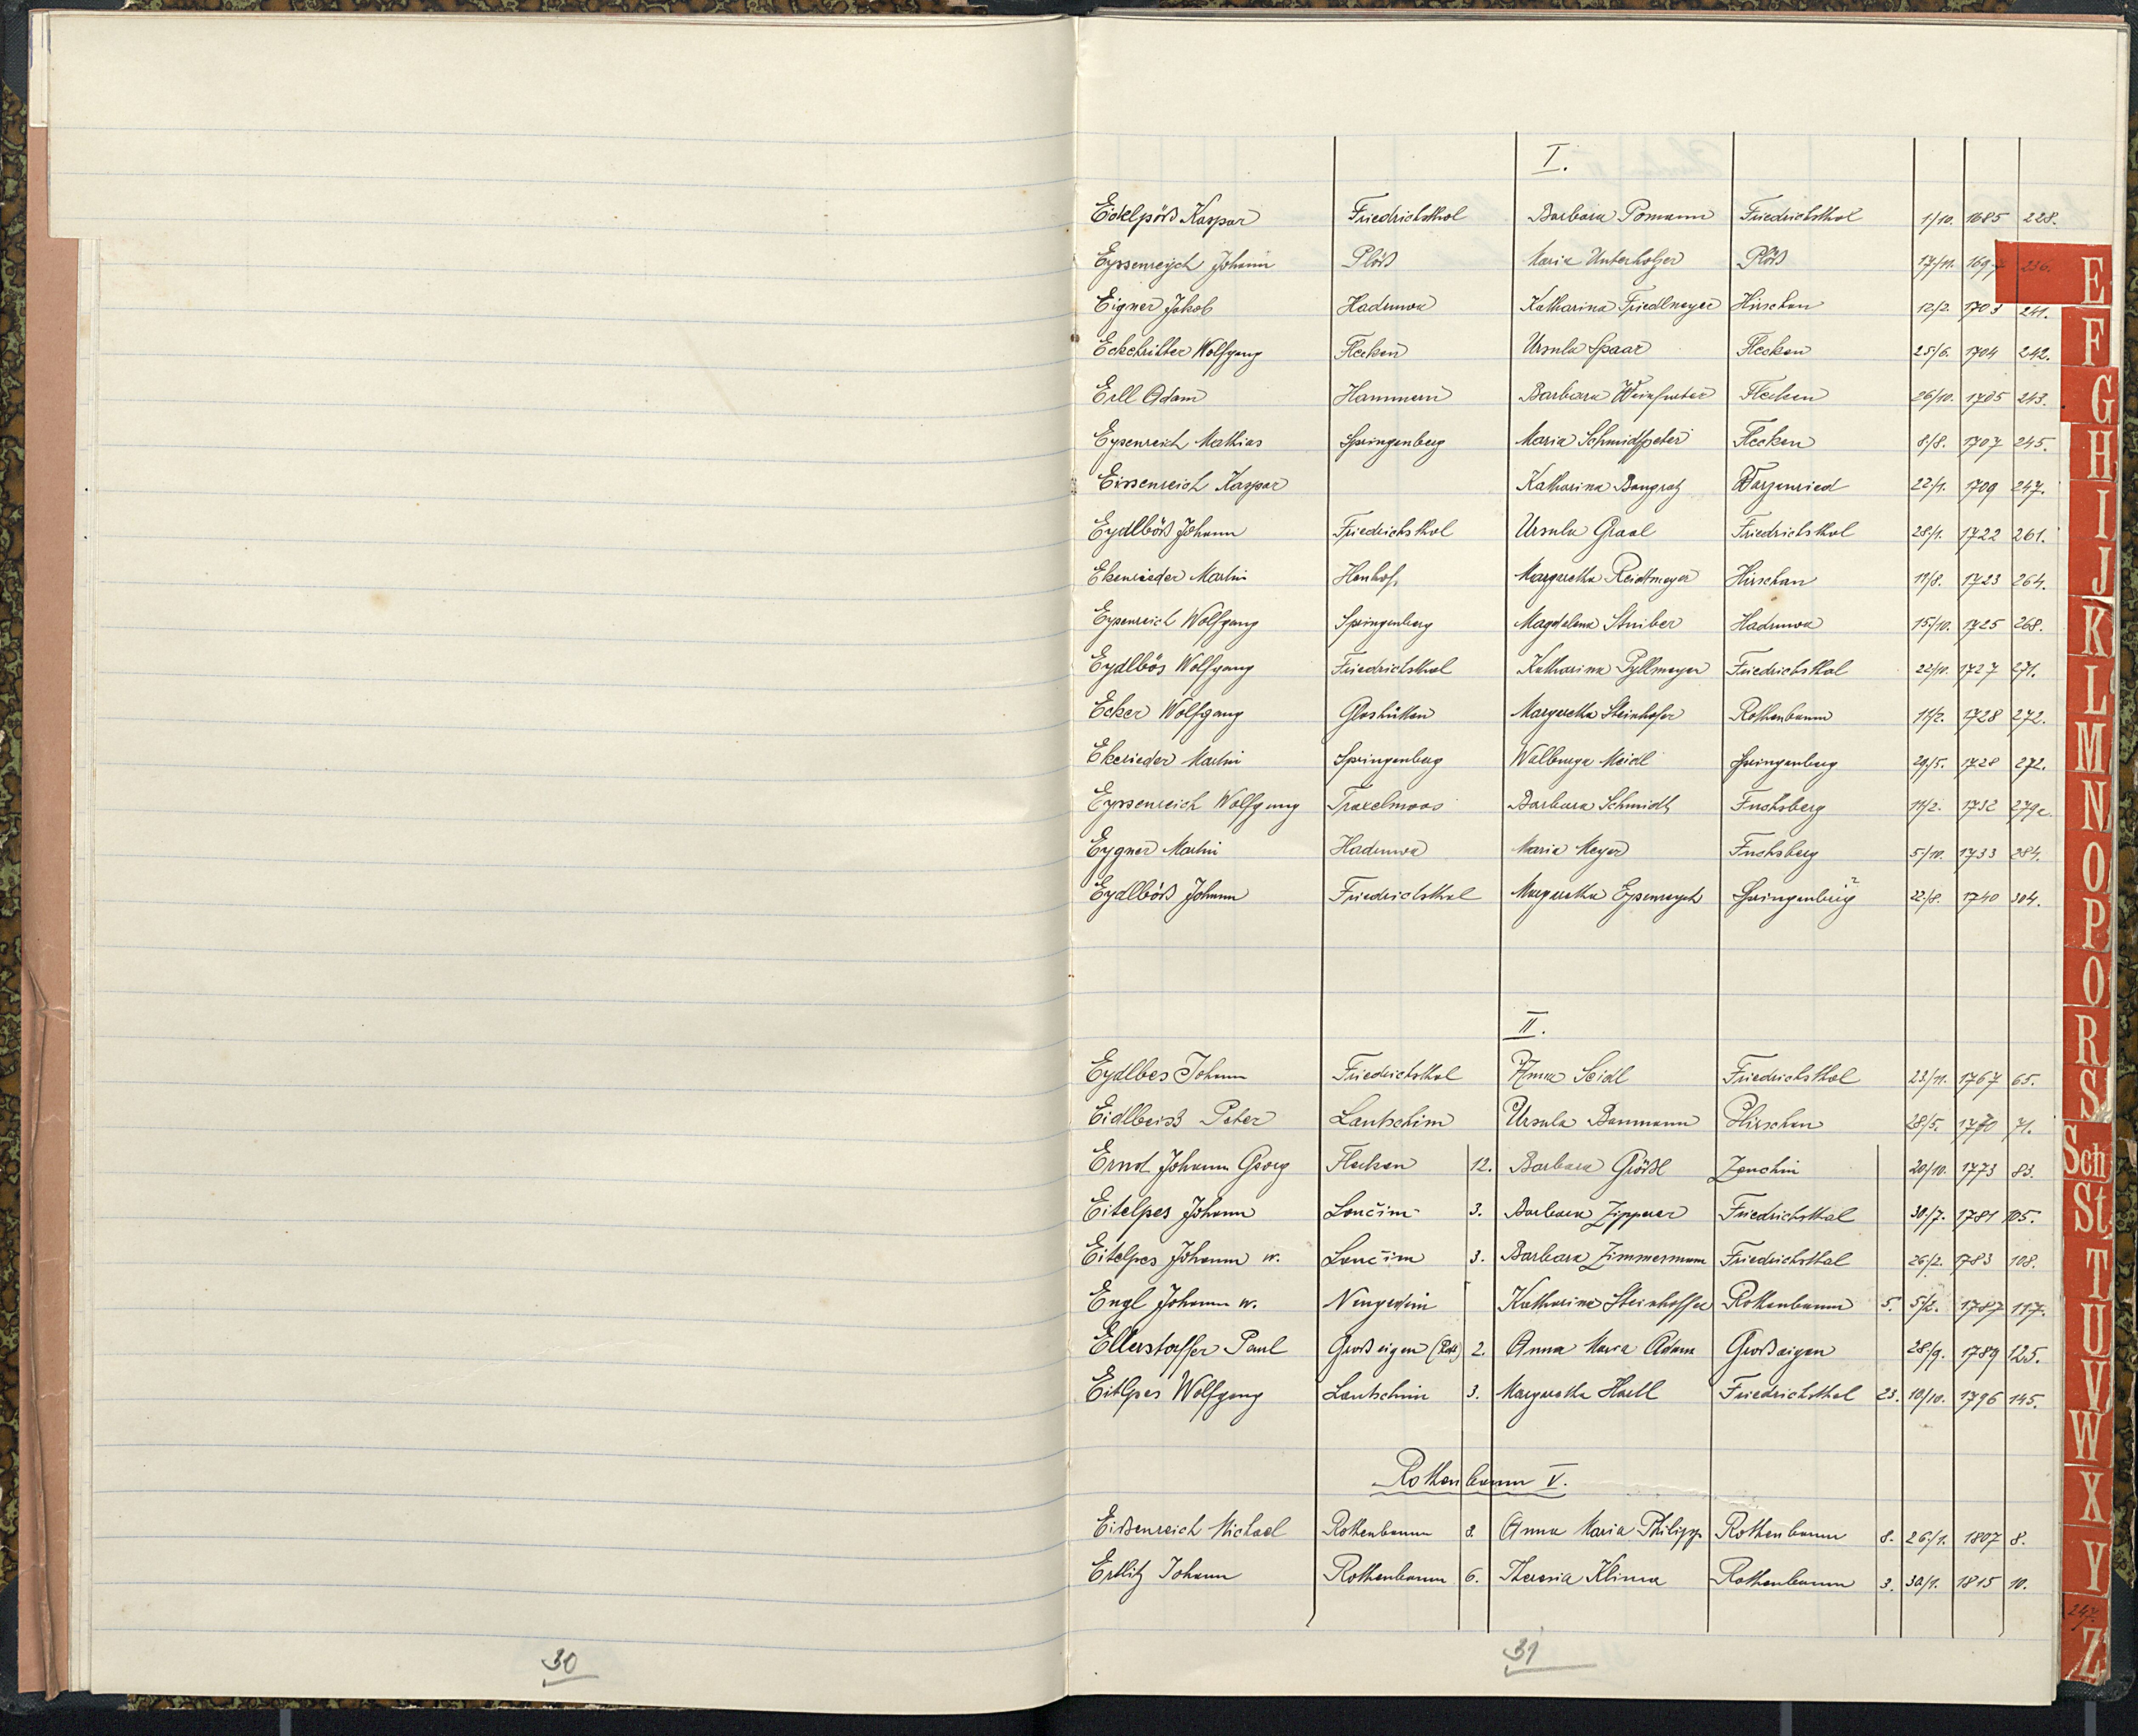 I.
Eidelpörß Kaspar Friedrichsthal Barbara Pomann Friedrichsthal 1/10. 1685 228.
Eyssenreych Johann Plöß Maria Unterholzer Plöß 17/11. 169 236.
Eigner Jakob Hadruwa Katharina Friedlmayer Hirschau 12/2. 1703 241.
Wolfgang Flecken Ursula Spaar Flecken 25/6. 1704 242.
Erll Adam Hammern Barbara Flecken 26/10. 1705 243.
Eysenreich Mathias Springenberg Maria Schmidtpeter Flecken 8/8. 1707 245.
Eissenreich Kaspar Katharina Bangratz Warzenried 22/1. 1709 247.
Eydlböß Johann Friedrichsthal Ursula Graal Friedrichsthal 28/1. 1722 261.
Ekenrieder Martin Henhof, Margaretha Reidtmayer Hirschau 11/8. 1723 264.
Eysenreich Wolfgang Springenberg Magdalena Stuiber Hadruwa 15/10. 1725 268.
Eydlbös Wolfgang Friedrichsthal Katharina Pyllmayer Friedrichsthal 22/10. 1727 271.
Ecker Wolfgang Glashütten Margaretha Steinhofer Rothenbaum 11/2. 1728 272.
Ekerieder Martin Springenberg Walburga Meidl Springenberg 29/5. 1728 272.
Eyssenreich Wolfgang Traxelmoos Barbara Schmidt Fuchsberg 11/2. 1732 279c.
Eygner Martin Hadruwa Maria Mayer Fuchsberg 5/10. 1733 284.
Eydlböß Johann Friedrichsthal Margaretha Eysenreych Springenberg ? 22/8. 1740 304.
II.
Eydlbes Johann Friedrichsthal Anna Seidl Friedrichsthal 23/11. 1767 65.
Eidlbeiß Peter Lautschim Ursula Baumann Hirschau 28/5. 1770 71.
Ernd Johann Georg Flecken 12. Barbara Größl Zenchin 20/10. 1773 83.
Eitelpes Johann Loučim 3. Barbara Zipperer Friedrichsthal 30/7. 1781 105.
Eitelpes Johann w. Loučim 3. Barbara Zimmermann Friedrichsthal 26/2. 1783 108.
Engl Johann w. Neugedein Katharina Steinhoffer Rothenbaum 5. 5/2. 1787 117.
Ellerstorffer Paul Großaigen 2. Anna Maria Adam Großaigen 28/9. 1789 125.
Eitlpes Wolfgang Lautschim 3. Margaretha Haell Friedrichsthal 23. 10/10. 1796 145.
Rothenbaum V.
Eißenreich Michael Rothenbaum 8. Anna Maria Philipp Rothenbaum 8. 26/1. 1807 8.
Ertlitz Johann Rothenbaum 6. Theresia Klima Rothenbaum 3. 30/1. 1815 10.
30
31
E
F
G
H
I
J
K
L
M
N
O
P
Q
R
S
Sch
St
T
U
V
W
X
Y
247.
Z